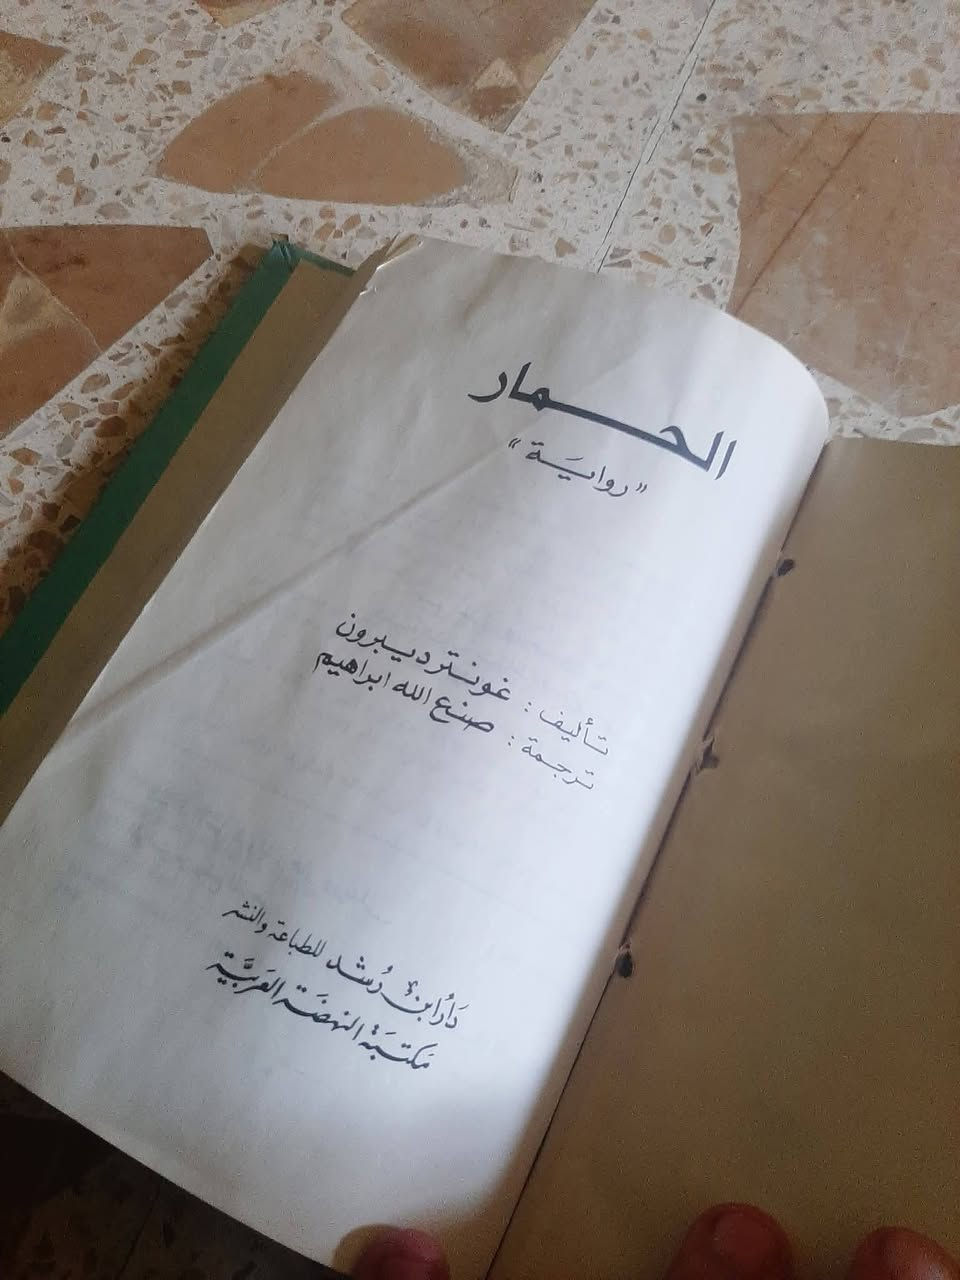 الحمار
"رواية"
تأليف: غونتر ديبرون
ترجمة: صنع الله ابراهيم
دَارُ ابنُ رُشد للطباعة والنشر
مَكتبَة النهضَة العَربيَّة